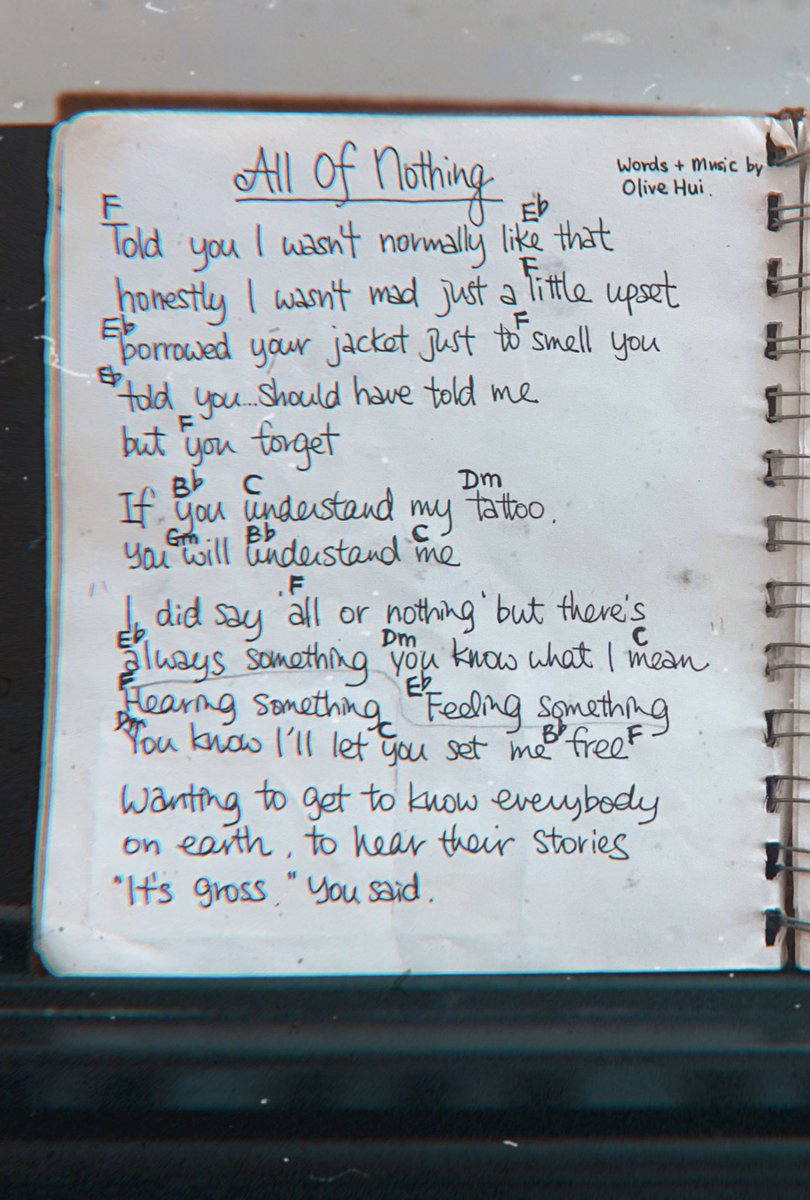 All Of Nothing
Words + Music by
Olive Hui.
F Eb
Told you I wasn't normally like that
F
honestly I wasn't mad just a little upset
Eb F
borrowed your jacket just to smell you
Eb
told you...should have told me
F
but you forget
Bb C Dm
If you understand my tattoo.
Gm Bb C
you will understand me
F
I did say 'all or nothing' but there's
Eb Dm C
always something you know what I mean
F Eb
Hearing something Feeling something
Dm C Bb F
You know I'll let you set me free
Wanting to get to know everybody
on earth, to hear their stories
"It's gross." You said.